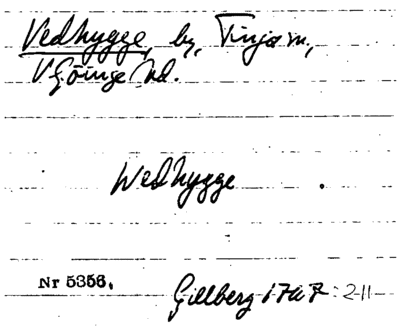 Vedhygge, by, Finja sn,
V Göinge hd.
Wedhygge
Nr 5356.
Gillberg 1767: 211